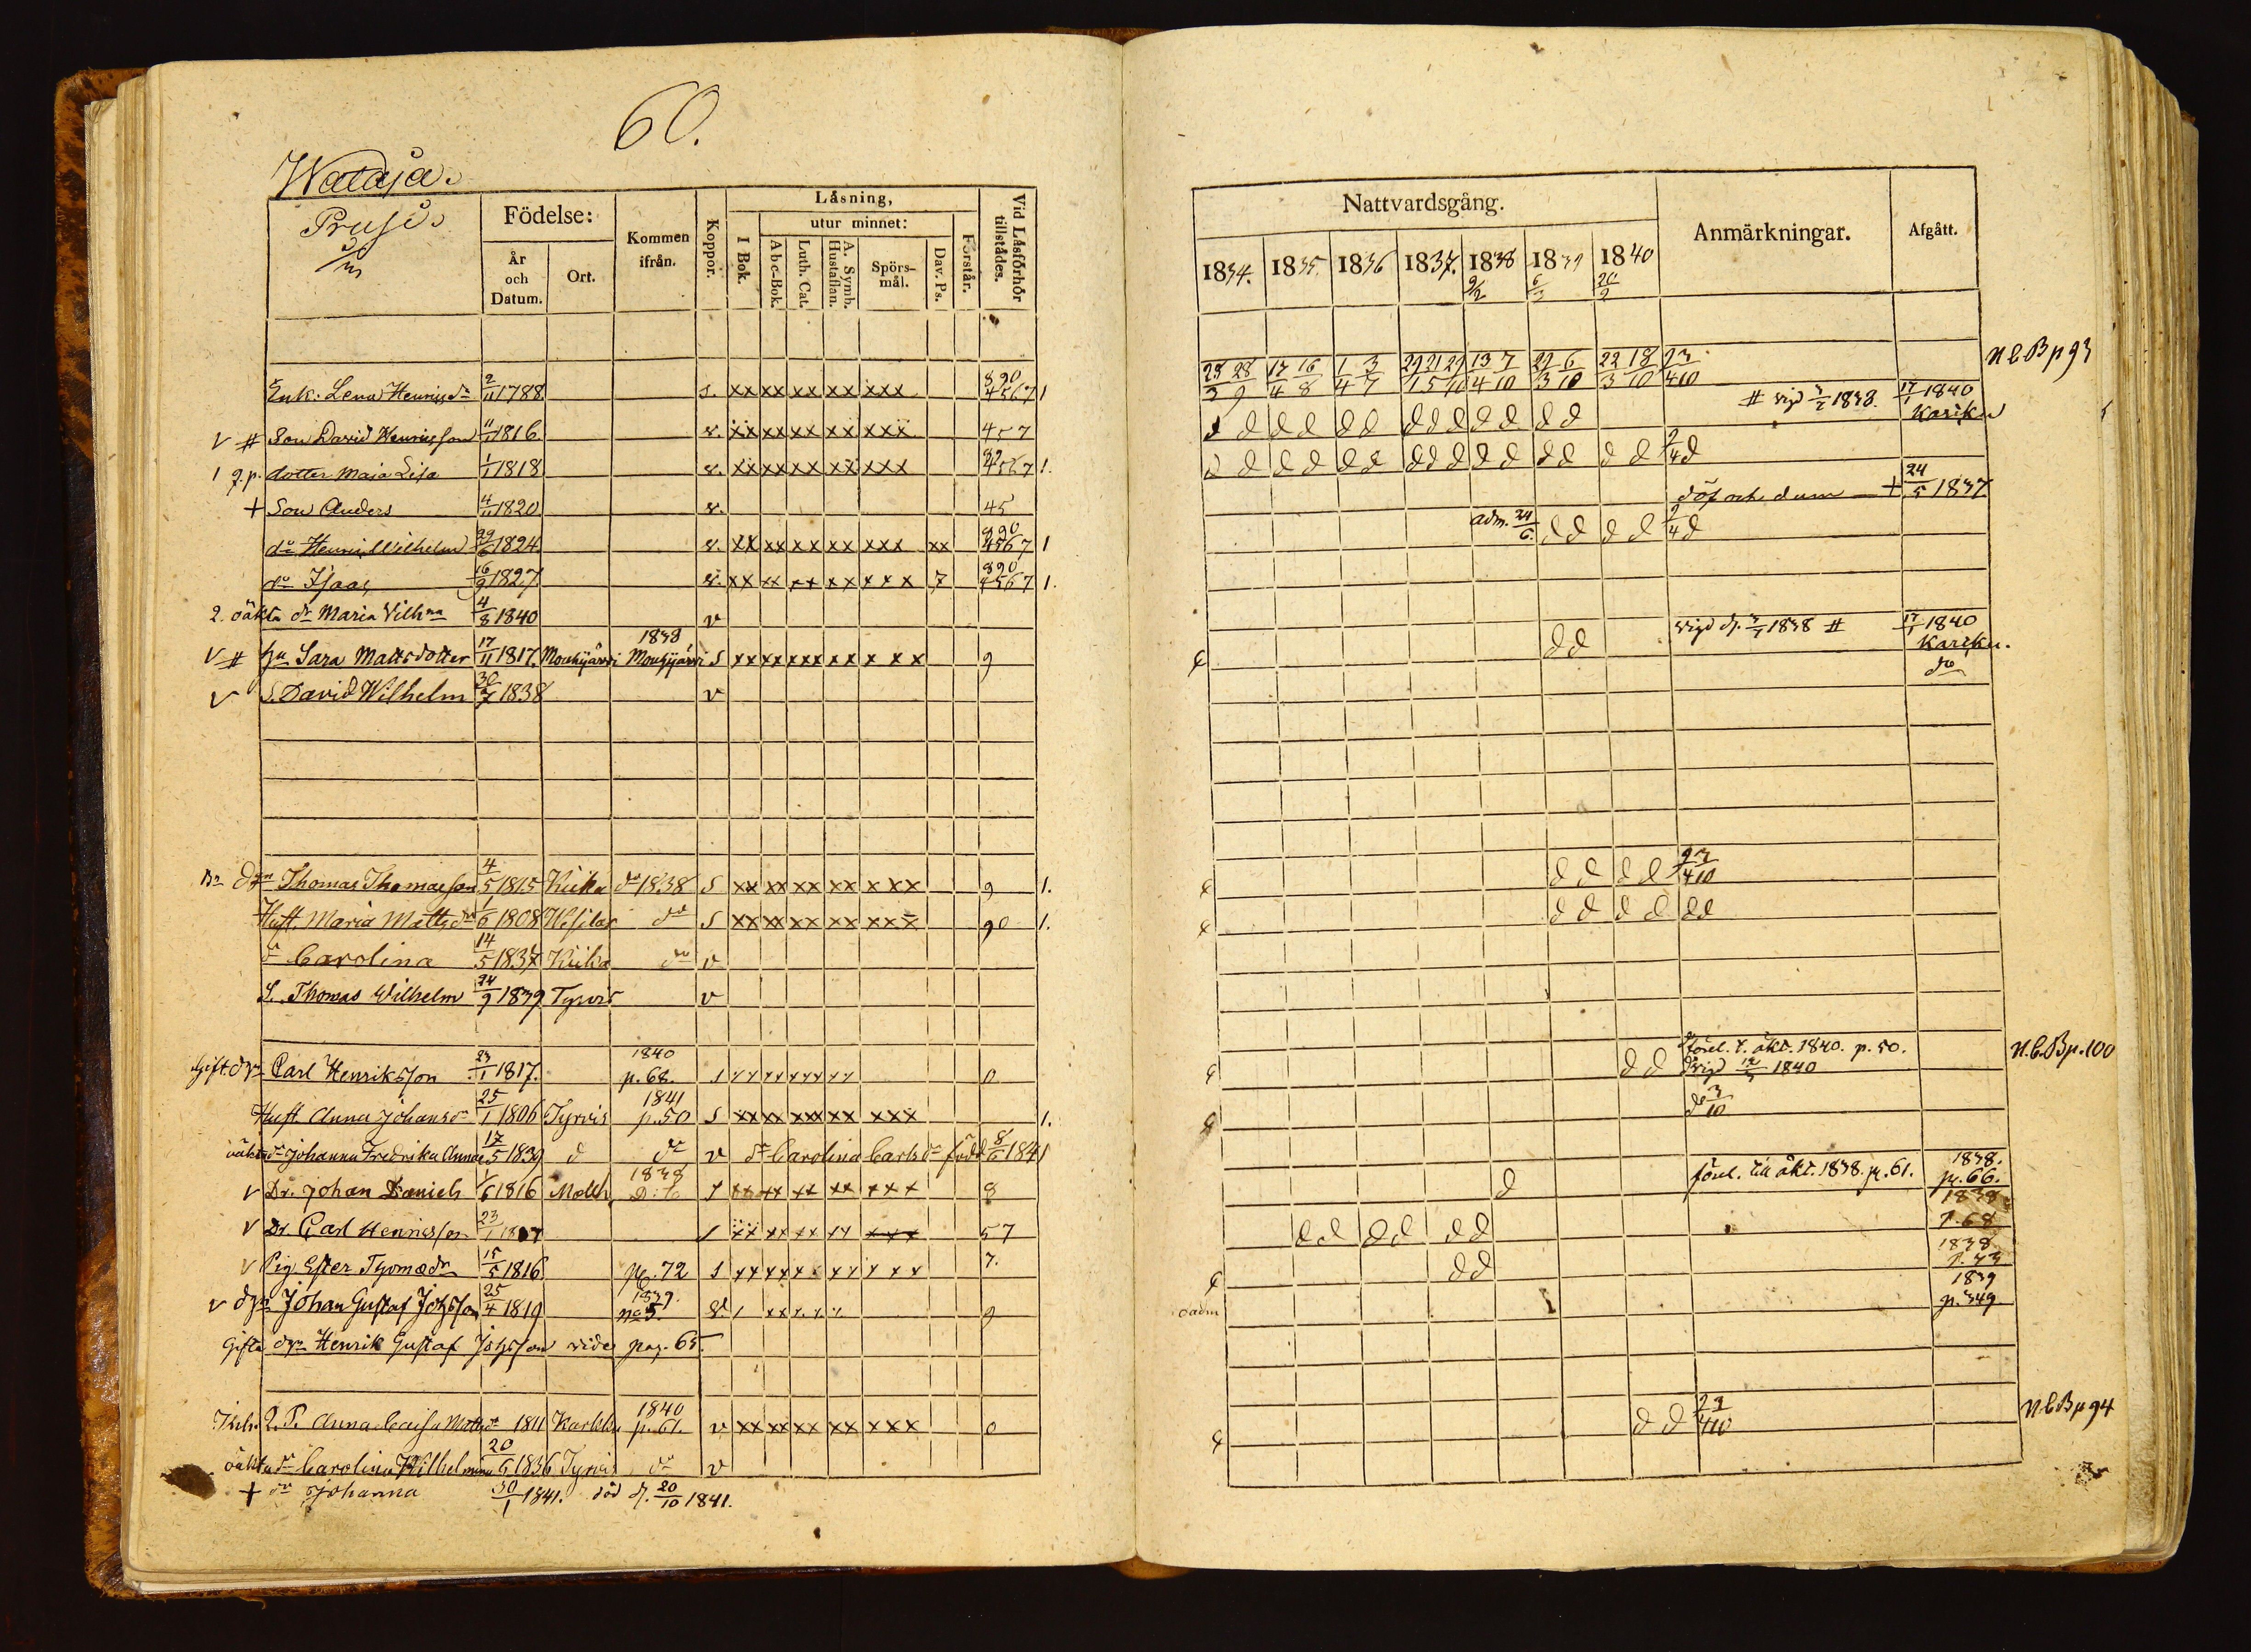 60.
Wataja.
Prusi
Födelse:
År och Datum.
Ort.
Kommen ifrån.
Koppor.
Läsning,
I Bok.
utur minnet:
Abc-Bok.
Luth. Cat.
A. Symb. Hustaflan.
Spörsmål.
Dav. Ps.
Förstår.
Vid Läsförhör tillstädes.
Enk. Lena Henricsdr 2/11 1788 s. xx xx xx xx xxx 890 4567 1
V # Son David Henricsson 11/11 1816 v. xx xx xx xx xxx 457
1 q.p. dotter Maja Lisa 1/1 1818 v. xx xx xx xx xxx 4567 1.
+ Son Anders 4/11 1820 v. 45
do Henric Wilhelm 29/6 1824 v. xx xx xx xx xxx xx 890 4567 1
do Isaac 16/9 1827 v. xx xx xx xx xxx 7 890 4567 1.
2. oäkta dr Maria Vilhna 4/8 1840 v
V # hu Sara Mattsdotter 17/11 1817. Mouhijärvi 1838 Mouhijärvi s xx xx xxx xx x xx 9
V S. David Wilhelm 30/7 1838 v
Thomas Thomasson 4/5 1815 Kiika do 1838 s xx xx xx xx xxx 9 1.
Hust. Maria Mattsdr 1/6 1808 Wesilax do s xx xx xx xx xxx 90 1.
dr Carolina 14/5 1837 Kiika do v
S. Thomas Wilhelm 24/9 1839 Tyrvis v
Gift dr Carl Henriksson 23/1 1817. 1840 p. 68. s xx xx xxx xx 0
Hust. Anna Johansdr 25/1 1806 Tyrvis 1841 p. 50 s xx xx xxx xx xxx 1.
oäkta dr Johanna Fredrika Annae 17/5 1839 d do v dr Carolina Carlsdr född 8/6 1841
V Dr. Johan Daniels 1/6 1816 1838 s xx xx xx xx xxx 8
V Dr. Carl Henricsson 23/1 1817 s xx xx xx xx xxx 57
V Pig. Ester Tomædr 15/5 1816 p. 72 s xx xx xx xx x xx 7.
V Johan Gustaf Johsson 25/4 1819 1839. no 5. 9
Gifte Henrik Gustaf Johsson vide pag. 65.
Q.P. Anna Caisa Mattsdr 1811 Karkku 1840 p. 61. v xx xx xx xx xxx 0
oäkta dr Carolina Wilhelmina 20/6 1836 Tyrvis do v
+ dr Johanna 30/1 1841. död d. 20/10 1841.
Nattvardsgång.
Anmärkningar.
Afgått.
1834. 1835. 1836 1837. 1838 1839 1840
9/2 6/3 20/2
25/3 28/9 17/4 16/8 1/4 3/7 29/1 21/5 29/10 13/4 7/10 22/3 6/10 22/3 18/10 2/4 3/10 N C B p 93
d d d d d d d d d d d d d # vigd 1838. 17/1 1840 Karkku
d d d d d d d d d d d d d d d 2/4 d
döf och dum + 24/5 1837
adm. 24/6 d d d d 2/4 d
d d vigd d. 1838 # 17/1 1840 Karkku.
do
d d d d 2/4 3/10
d d d d dd
d d förel. t. äkt. 1840. p. 50. N.C.B p. 100
vigd 1840
d 3/10
d förel. till äkt. 1838. p. 61. 1838. p. 66.
d d d d d d 1838 p. 68
d d 1838
oadm 1839 p. 349
d d 2/4 3/10 N C B p 94